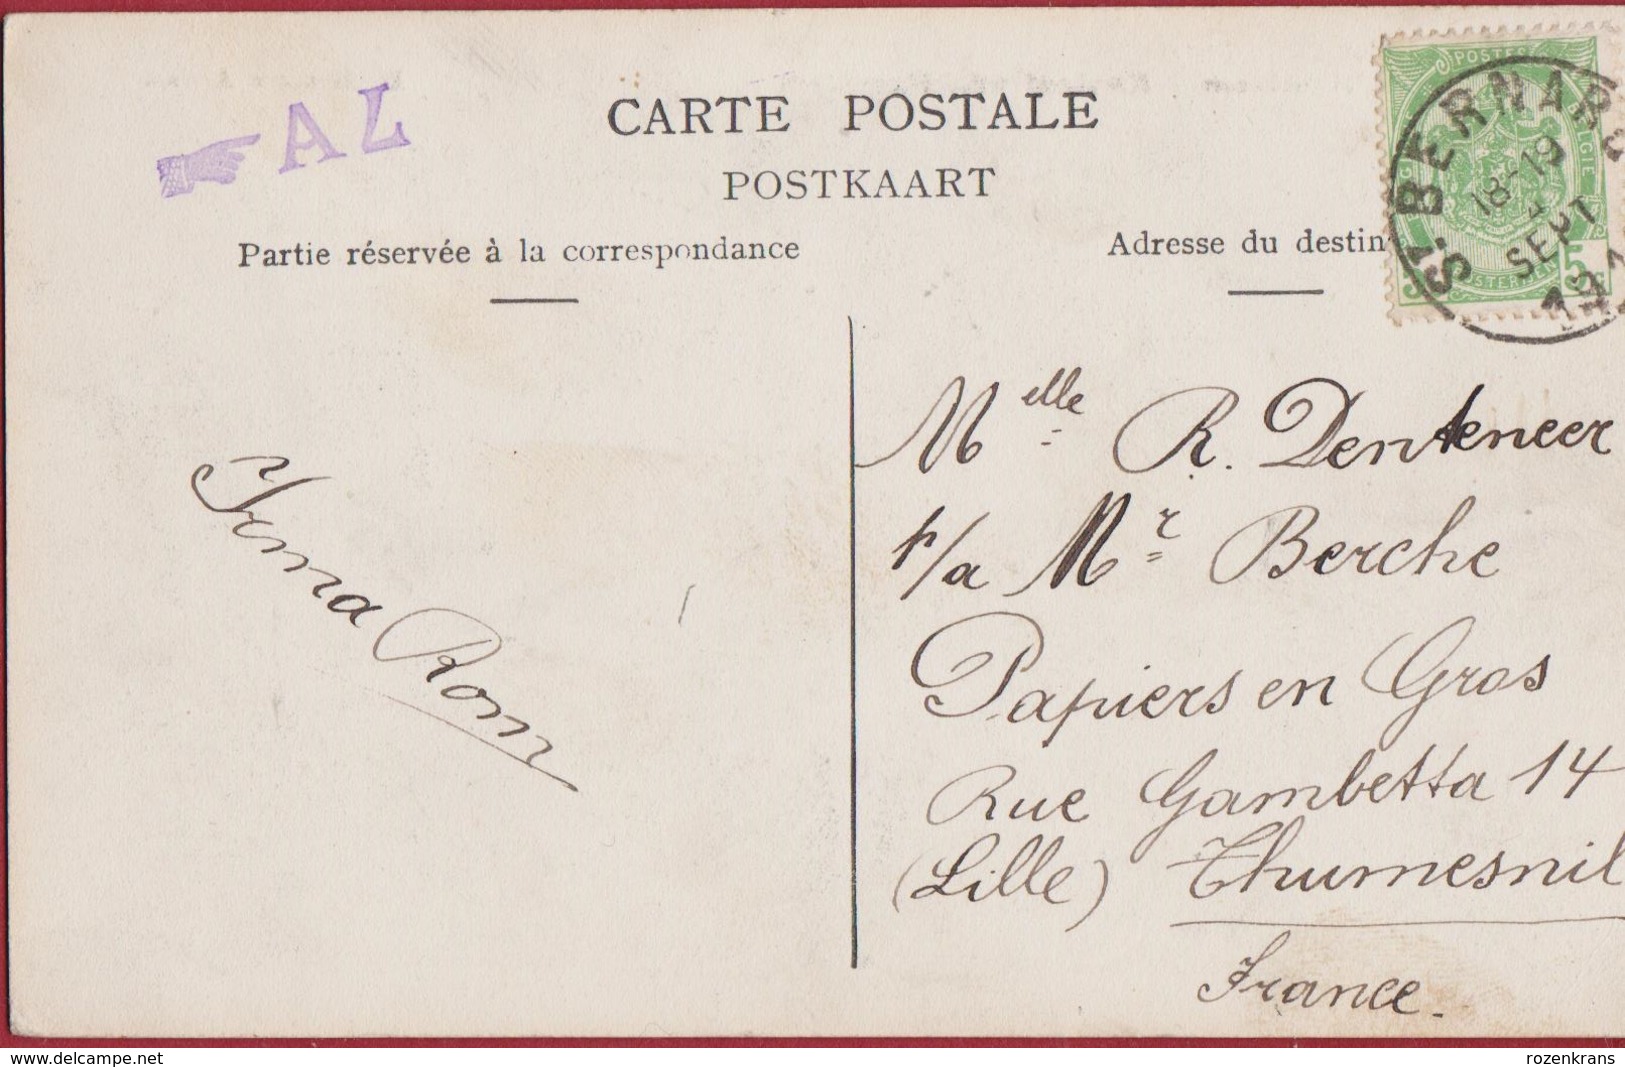 AL
CARTE POSTALE
POSTKAART
Partie réservée à la correspondance
Adresse du destin
POSTES
BELGIE
5c
ST BERNARD
18-19
SEPT
Irma Rom
Melle R. Denteneer
p/a Mr Berche
Papiers en Gros
Rue Gambetta 14
(Lille) Thumesnil
France.
www.delcampe.net
rozenkrans